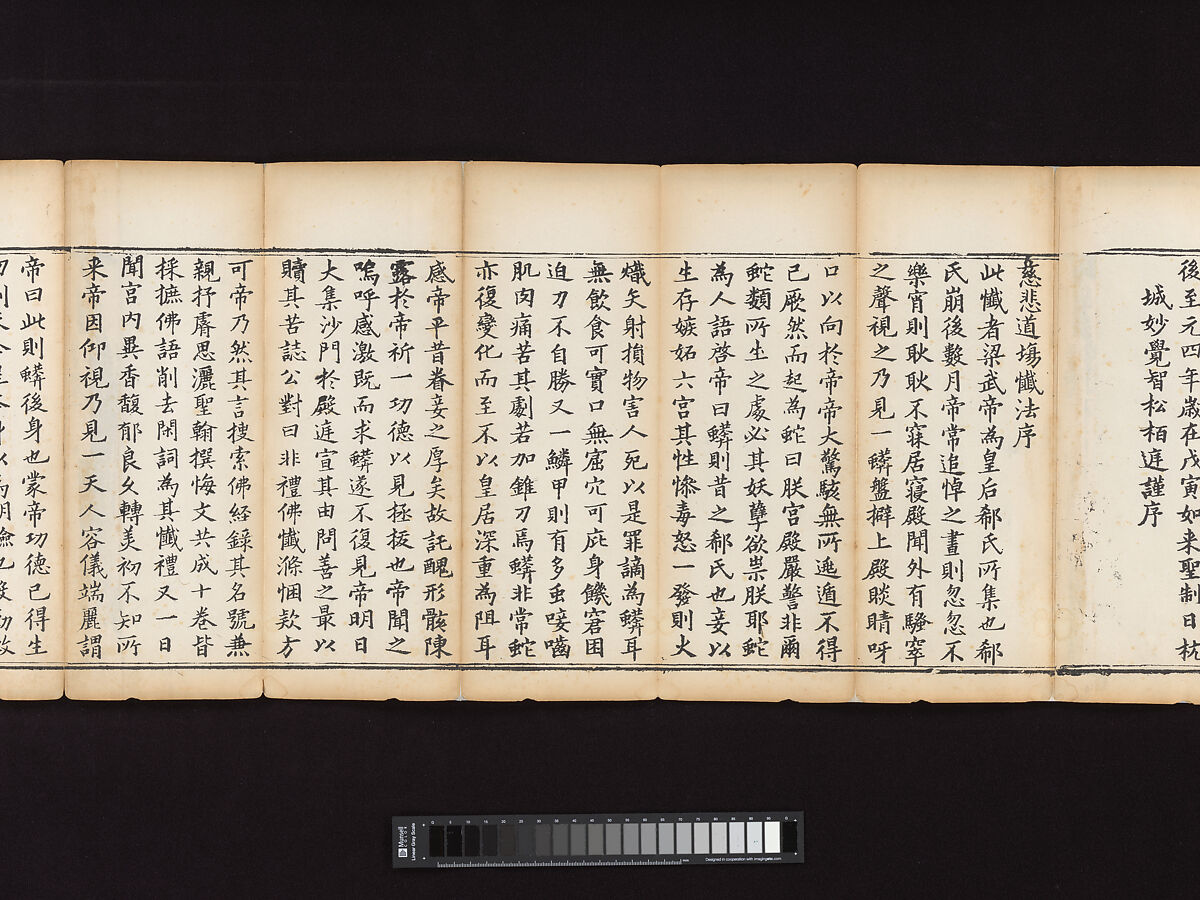 後至元四年歲在戊寅如来聖制日杭
城妙覺智松柏庭謹序
慈悲道場懺法序
此懺者梁武帝為皇后郗氏所集也郗
氏崩後數月帝常追悼之晝則忽忽不
樂宵則耿耿不寐居寢殿聞外有騷窣
之聲視之乃見一蟒盤躃上殿睒睛呀
口以向於帝帝大驚駭無所逃遁不得
已厥然而起為蛇曰朕宮殿嚴警非爾
蛇類所生之處必其妖孽欲祟朕耶蛇
為人語啓帝曰蟒則昔之郗氏也妾以
生存嫉妬六宮其性慘毒怒一發則火
熾矢射損物害人死以是罪謫為蟒耳
無飲食可實口無窟穴可庇身饑窘困
迫力不自勝又一鱗甲則有多虫唼嚙
肌肉痛苦其劇若加錐刀焉蟒非常蛇
亦復變化而至不以皇居深重為阻耳
感帝平昔眷妾之厚矣故託醜形骸陳
露於帝祈一功德以見拯拔也帝聞之
嗚呼感激既而求蟒遂不復見帝明日
大集沙門於殿庭宣其由問善之最以
贖其苦誌公對曰非禮佛懺滌悃款方
可帝乃然其言搜索佛経錄其名號兼
親抒睿思灑聖翰撰悔文共成十卷皆
採摭佛語削去閑詞為其懺禮又一日
聞宮内異香馥郁良久轉美初不知所
来帝因仰視乃見一天人容儀端麗謂
帝曰此則蟒後身也蒙帝功德已得生